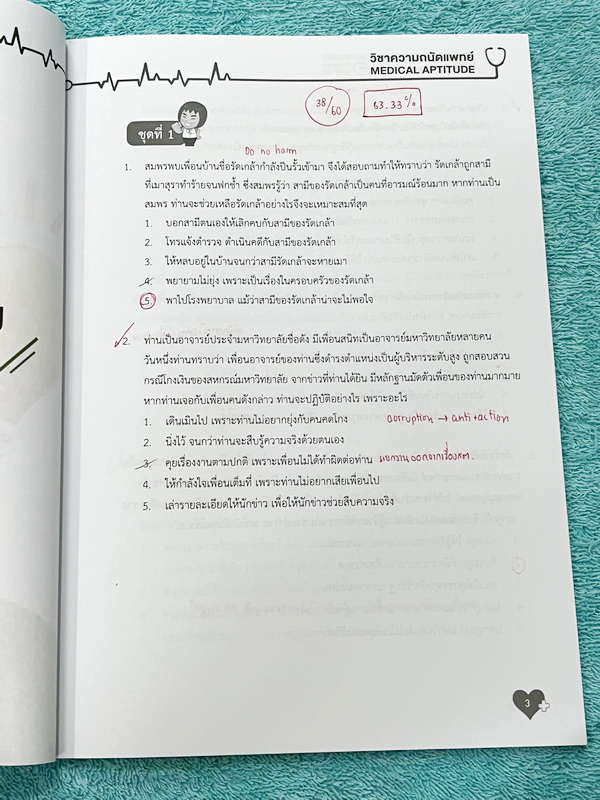 วิชาความถนัดแพทย์
MEDICAL APTITUDE
38/60
63.33 %
ชุดที่ 1
Do no harm
1. สมพรพบเพื่อนบ้านชื่อรัดเกล้ากำลังปีนรั้วเข้ามา จึงได้สอบถามทำให้ทราบว่า รัดเกล้าถูกสามี
ที่เมาสุราทำร้ายจนฟกช้ำ ซึ่งสมพรรู้ว่า สามีของรัดเกล้าเป็นคนที่อารมณ์ร้อนมาก หากท่านเป็น
สมพร ท่านจะช่วยเหลือรัดเกล้าอย่างไรจึงจะเหมาะสมที่สุด
1. บอกสามีตนเองให้เลิกคบกับสามีของรัดเกล้า
2. โทรแจ้งตำรวจ ดำเนินคดีกับสามีของรัดเกล้า
3. ให้หลบอยู่ในบ้านจนกว่าสามีรัดเกล้าจะหายเมา
4. พยายามไม่ยุ่ง เพราะเป็นเรื่องในครอบครัวของรัดเกล้า
5. พาไปโรงพยาบาล แม้ว่าสามีของรัดเกล้าน่าจะไม่พอใจ
2. ท่านเป็นอาจารย์ประจำมหาวิทยาลัยชื่อดัง มีเพื่อนสนิทเป็นอาจารย์มหาวิทยาลัยหลายคน
วันหนึ่งท่านทราบว่า เพื่อนอาจารย์ของท่านซึ่งดำรงตำแหน่งเป็นผู้บริหารระดับสูง ถูกสอบสวน
กรณีโกงเงินของสหกรณ์มหาวิทยาลัย จากข่าวที่ท่านได้ยิน มีหลักฐานมัดตัวเพื่อนของท่านมากมาย
หากท่านเจอกับเพื่อนคนดังกล่าว ท่านจะปฏิบัติอย่างไร เพราะอะไร
1. เดินเมินไป เพราะท่านไม่อยากยุ่งกับคนคดโกง corruption → anti+action
2. นิ่งไว้ จนกว่าท่านจะสืบรู้ความจริงด้วยตนเอง
3. คุยเรื่องงานตามปกติ เพราะเพื่อนไม่ได้ทำผิดต่อท่าน แยกงานออกจากเรื่อง
4. ให้กำลังใจเพื่อนเต็มที่ เพราะท่านไม่อยากเสียเพื่อนไป
5. เล่ารายละเอียดให้นักข่าว เพื่อให้นักข่าวช่วยสืบความจริง
3